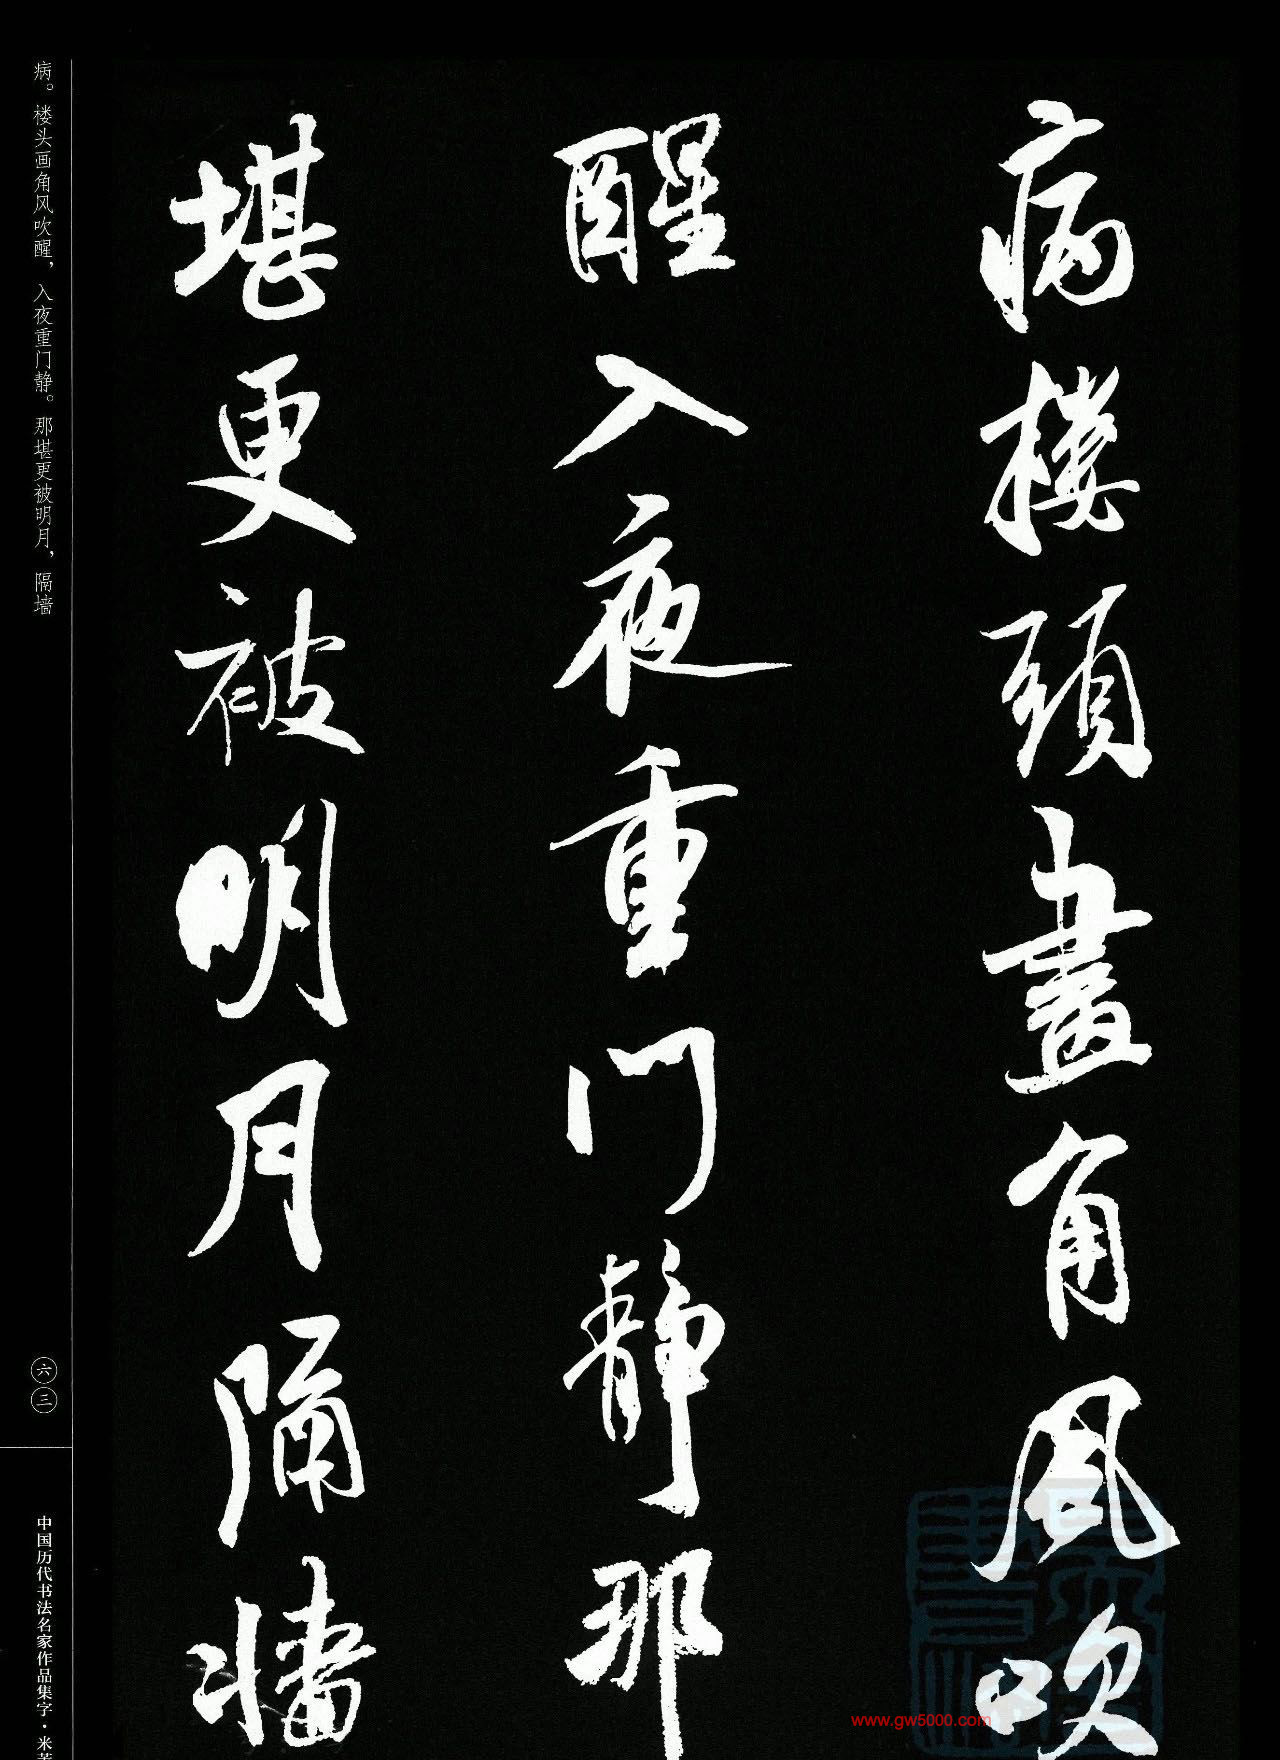 病樓頭畫角風吹
醒入夜重門静那
堪更被明月隔牆
病。楼头画角风吹醒，入夜重门静。那堪更被明月，隔墙
六三
中国历代书法名家作品集字·米芾
www.gw5000.com